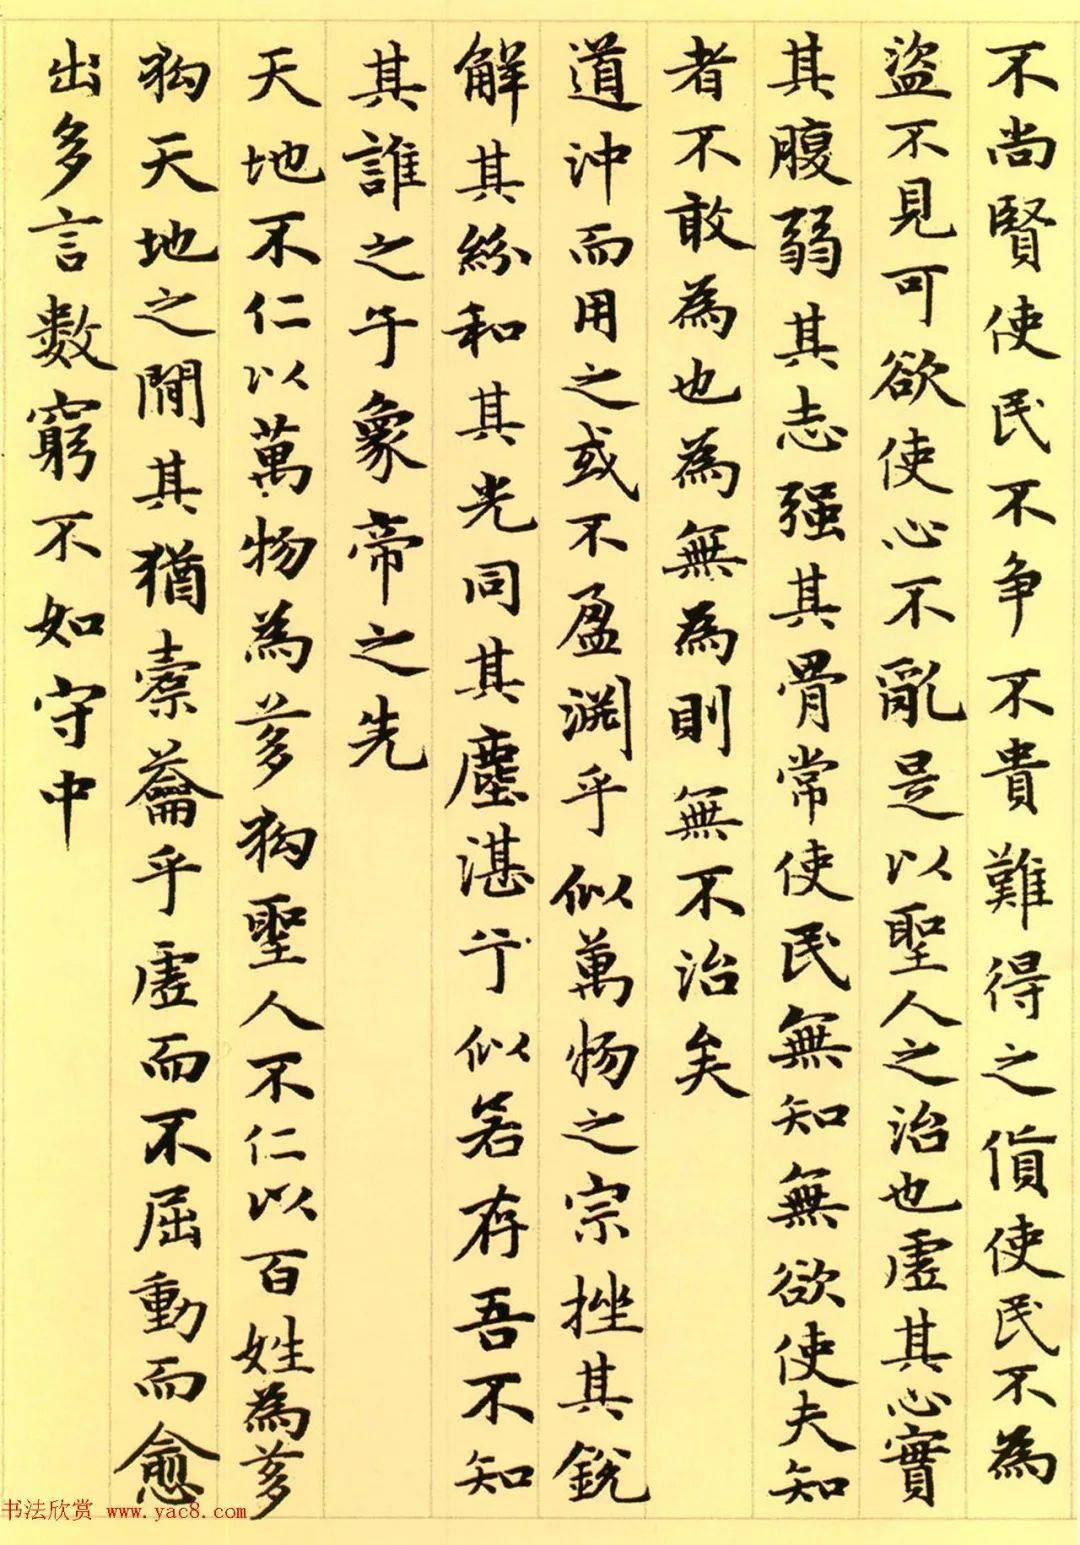 不尚賢使民不争不貴難得之貨使民不為
盜不見可欲使心不亂是以聖人之治也虛其心實
其腹弱其志强其骨常使民無知無欲使夫知
者不敢為也為無為則無不治矣
道沖而用之或不盈渊乎似萬物之宗挫其銳
解其紛和其光同其塵湛兮似若存吾不知
其誰之子象帝之先
天地不仁以萬物為芻狗聖人不仁以百姓為芻
狗天地之間其猶橐蘥乎虛而不屈動而愈
出多言數窮不如守中
书法欣赏 www.yac8.com